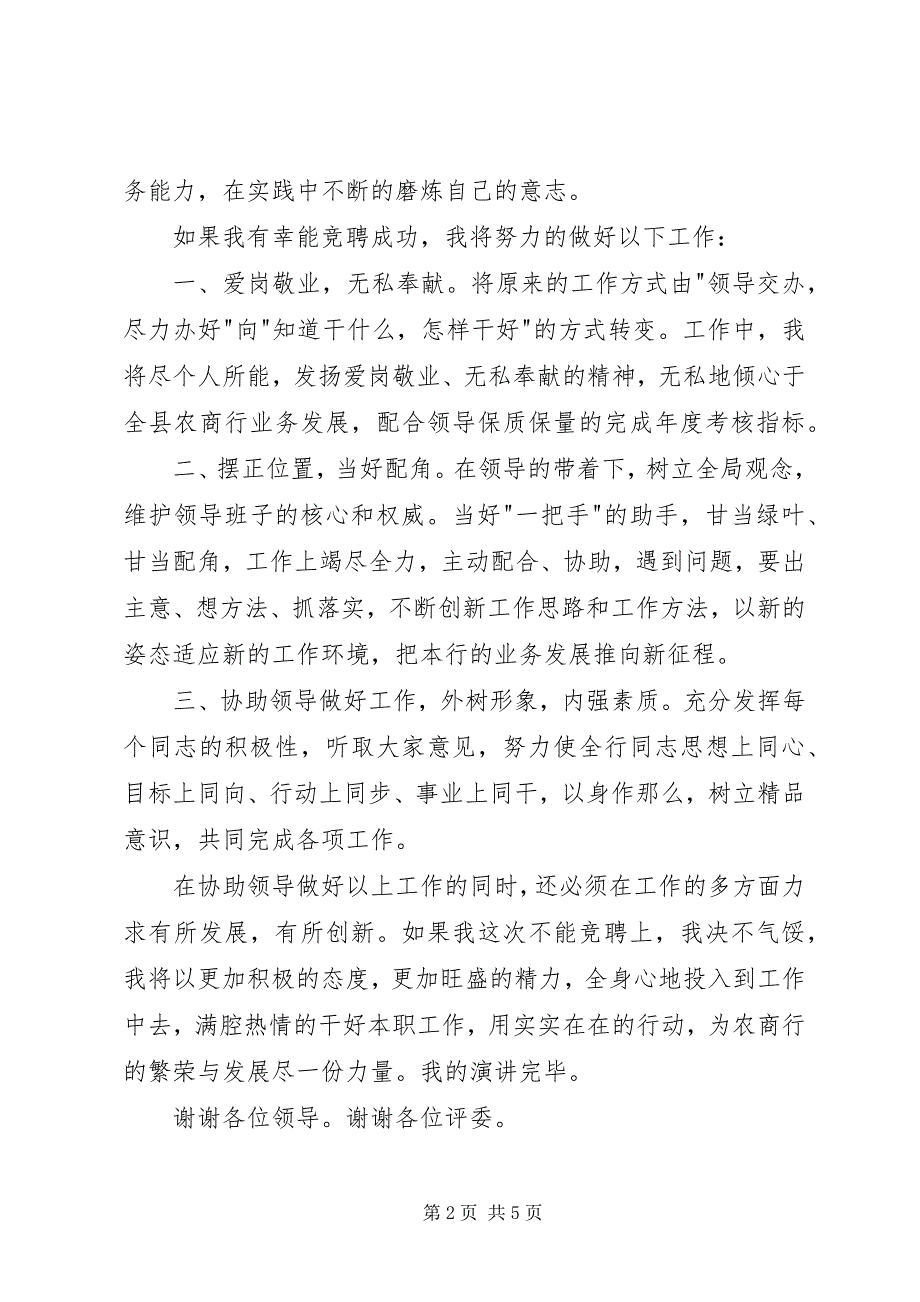 务能力，在实践中不断的磨炼自己的意志。
如果我有幸能竞聘成功，我将努力的做好以下工作：
一、爱岗敬业，无私奉献。将原来的工作方式由"领导交办，
尽力办好"向"知道干什么，怎样干好"的方式转变。工作中，我
将尽个人所能，发扬爱岗敬业、无私奉献的精神，无私地倾心于
全县农商行业务发展，配合领导保质保量的完成年度考核指标。
二、摆正位置，当好配角。在领导的带着下，树立全局观念，
维护领导班子的核心和权威。当好"一把手"的助手，甘当绿叶、
甘当配角，工作上竭尽全力，主动配合、协助，遇到问题，要出
主意、想方法、抓落实，不断创新工作思路和工作方法，以新的
姿态适应新的工作环境，把本行的业务发展推向新征程。
三、协助领导做好工作，外树形象，内强素质。充分发挥每
个同志的积极性，听取大家意见，努力使全行同志思想上同心、
目标上同向、行动上同步、事业上同干，以身作那么，树立精品
意识，共同完成各项工作。
在协助领导做好以上工作的同时，还必须在工作的多方面力
求有所发展，有所创新。如果我这次不能竞聘上，我决不气馁，
我将以更加积极的态度，更加旺盛的精力，全身心地投入到工作
中去，满腔热情的干好本职工作，用实实在在的行动，为农商行
的繁荣与发展尽一份力量。我的演讲完毕。
谢谢各位领导。谢谢各位评委。
第 2 页 共 5 页